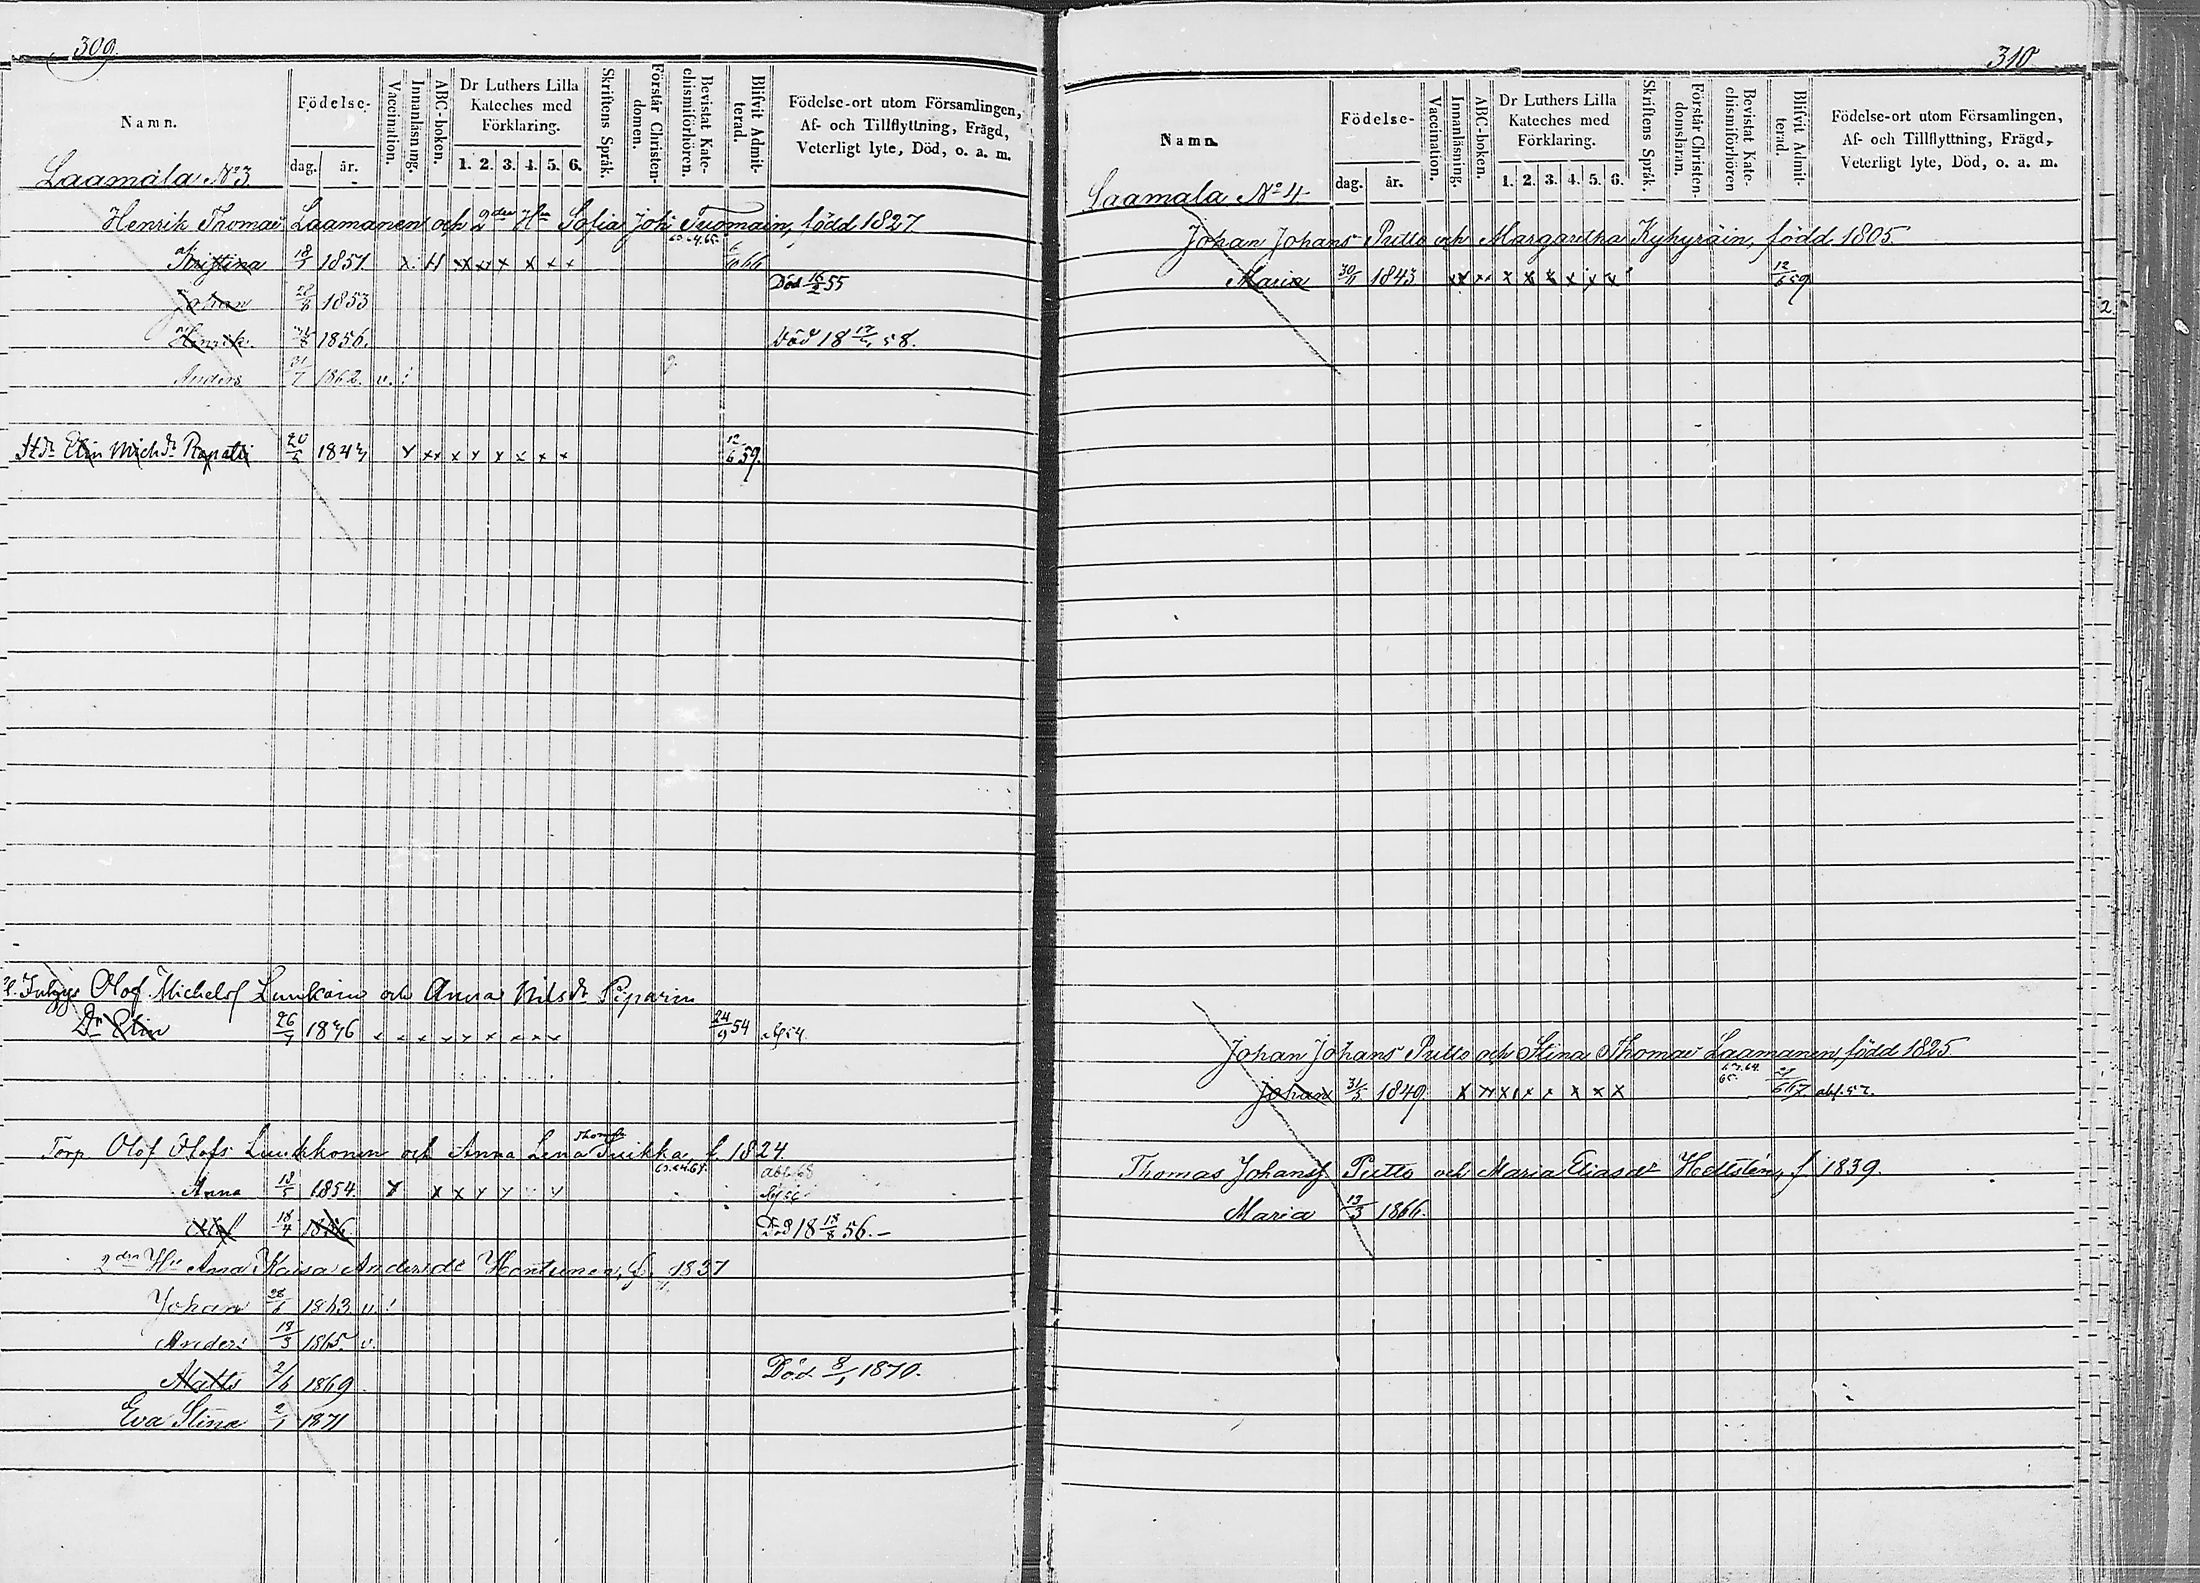 309.
Namn.
Födelse-
dag. år.
Vaccination.
Innanläsning.
ABC-boken.
Dr Luthers Lilla
Kateches med
Förklaring.
1. 2. 3. 4. 5. 6.
Skriftens Språk.
Förstår Christen-
domen.
Bevistat Kate-
chismiförhören.
Blifvit Admit-
terad.
Födelse-ort utom Församlingen,
Af- och Tillflyttning, Frägd,
Veterligt lyte, Död, o. a. m.
Laamala No 3.
Henrik Thomas Laamanen och 2dra Hu Sofia Joh Tuomain, född 1827
63.64.65.
Kristina 18/3 1851 x x x x x x x
Johan 1853 Död 16/2 55
Henrik 1856. Död 18 58.
Anders 1862. v.
Elin Michdr Rapatti 1843 x xx x x x x x x 12/6 59.
Olof Michelsf Lunkain och Anna Nilsdr Piparin
Dr Elin 26 x x x x x x x x x 24/9 54
Torp Olof Olofs Lunkkonen och Anna Lena Thomsdr Tuikka, f. 1824
63.64.65. abf. 68
Anna 18/5 1854. x x x x x x
Olof 18/4 1856 Död 18 18/8 56.
2dra Hu Anna Kaisa Andersdr Hontunen, f. 1837
Johan 28/6 1863. v.
Anders 18/3 1865 v.
Matts 2/6 1869 Död 8/1 1870.
Eva Stina 2/1 1871
310
Namn.
Födelse-
dag. år.
Vaccination.
Innanläsning.
ABC-boken.
Dr Luthers Lilla
Kateches med
Förklaring.
1. 2. 3. 4. 5. 6.
Skriftens Språk.
Förstår Christen-
domslaran.
Bevistat Kate-
chismiförhören
Blifvit Admit-
terad.
Födelse-ort utom Församlingen,
Af- och Tillflyttning, Frägd,
Veterligt lyte, Död, o. a. m.
Laamala No 4
Johan Johans Putto och Margaretha Kyhyräin, född 1805.
Maria 30/11 1843 xx xx x x x x x x 12/6 59
Johan Johans Putto och Stina Thomas Laamanen, född 1825
63.64.
65.
Johan 31/3 1849 x xx x x x x x x 67. abf. 52.
Thomas Johansf Putto och Maria Eliasdr Hellsten, f. 1839.
Maria 13/3 1866.
2